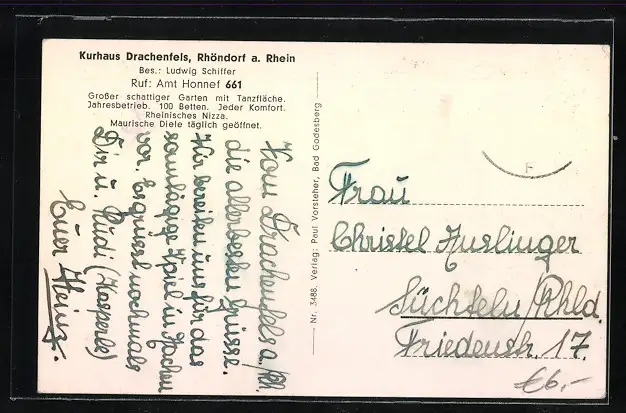 Kurhaus Drachenfels, Rhöndorf a. Rhein
Bes.: Ludwig Schiffer
Ruf: Amt Honnef 661
Großer schattiger Garten mit Tanzfläche.
Jahresbetrieb. 100 Betten. Jeder Komfort.
Rheinisches Nizza.
Maurische Diele täglich geöffnet.
Vom Drachenfels a/Rh.
die allerbesten Grüsse.
Wir bereiten uns für das
sonntägige Spiel in Aachen
vor. Es grüsst nochmals
Dir u. Rudi (Kasperle)
Euer Heinz.
Nr. 3488. Verlag: Paul Vorsteher, Bad Godesberg
Frau
Christel Auslinger
Süchteln/Rhld.
Friedenstr. 17.
€6,-